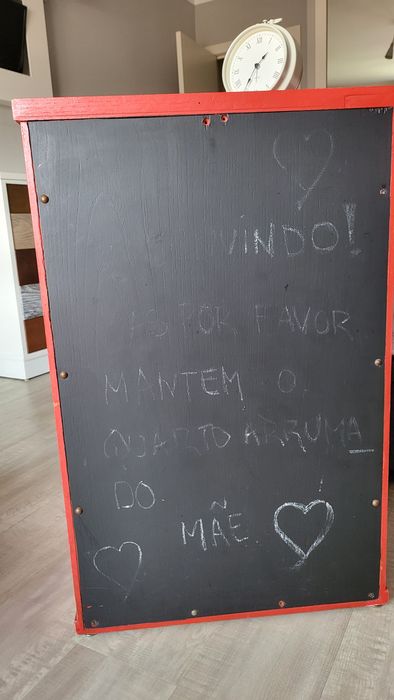 VINDO!
POR FAVOR
MANTEM O
QUARTO ARRUMA
DO
MÃE